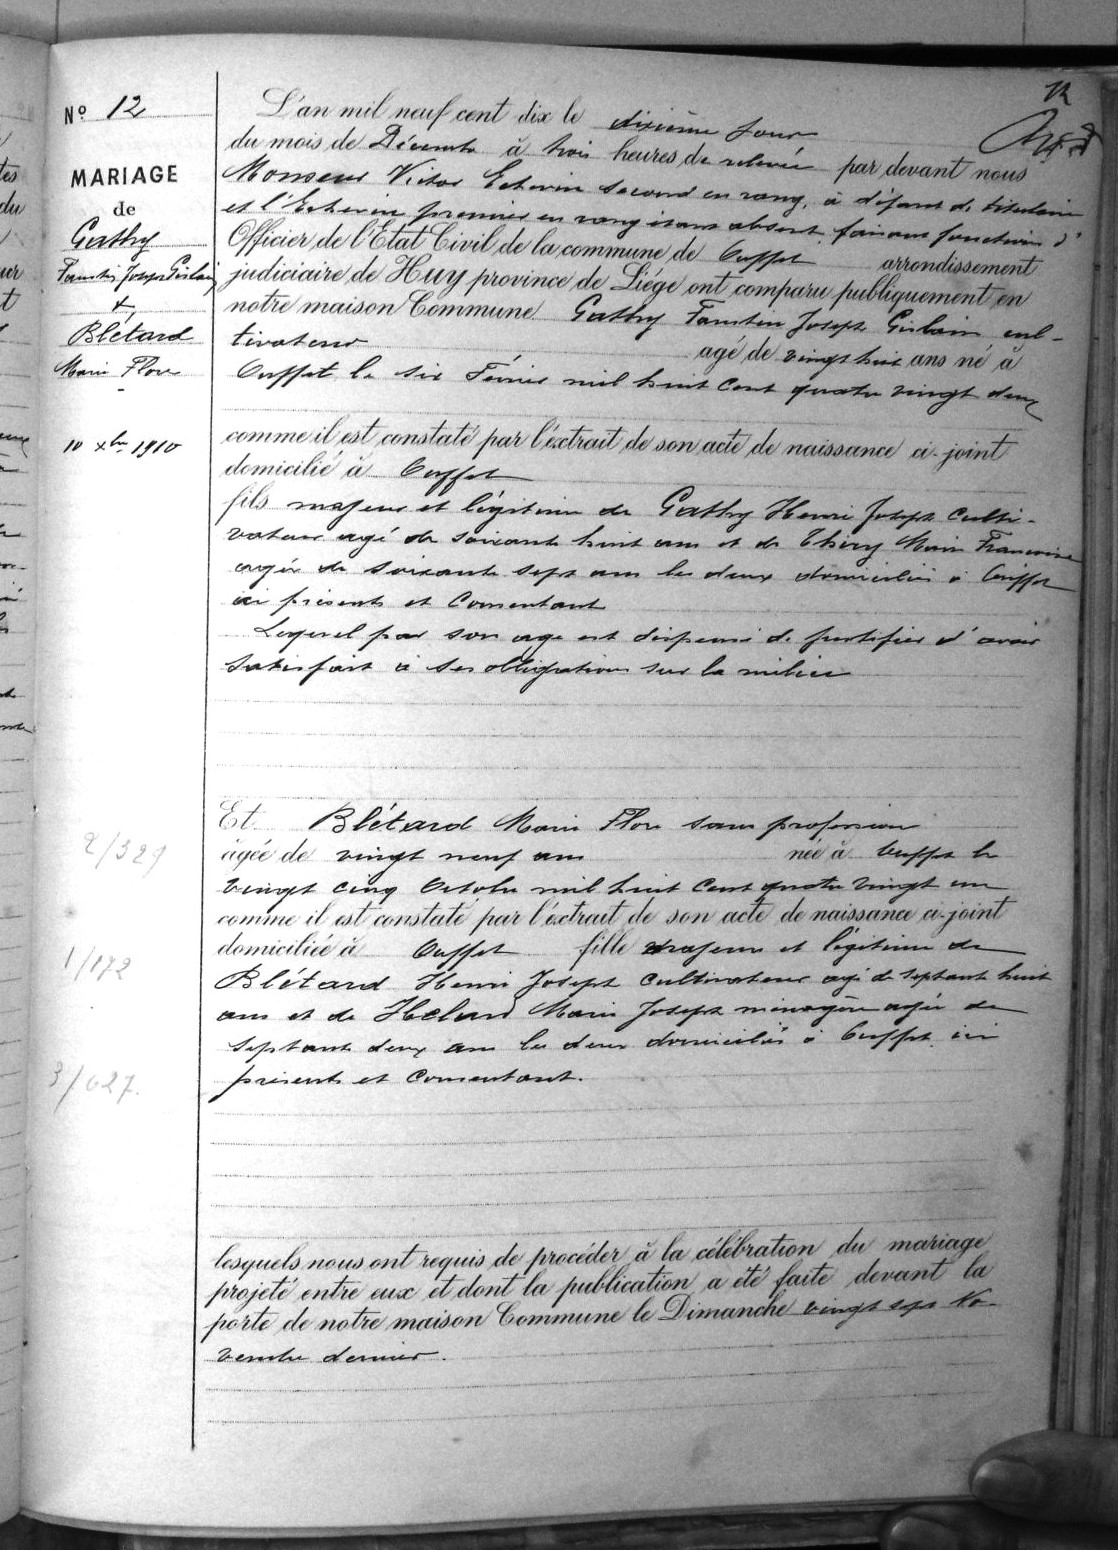 12
No 12
MARIAGE
de
Gathy
Faustin Joseph Gislain
&
Blétard
Marie Flore
10 xbre 1910
L'an mil neuf cent dix le dixième jour
du mois de Décembre à trois heures de relevée par devant nous
Monsieur Victor Echevin second en rang, à défaut de titulaire
et l'Echevin premier en rang étant absent, faisant fonctions d'
Officier de l'Etat Civil de la commune de Ouffet arrondissement
judiciaire de Huy province de Liége ont comparu publiquement en
notre maison Commune Gathy Faustin Joseph Gislain cul-
tivateur agé de vingt huit ans né à
Ouffet le six Février mil huit cent quatre vingt deux
comme il est constaté par l'extrait de son acte de naissance ci-joint
domicilié à Ouffet
fils majeur et légitime de Gathy Henri Joseph culti-
vateur agé de soixante huit ans et de Thiry Marie Françoise
agée de soixante sept ans les deux domiciliés à Ouffet
ici présents et consentant
Lequel par son age est dispensé de justifier d'avoir
satisfait à ses obligations sur la milice
Et Blétard Marie Flore sans profession
agée de vingt neuf ans née à Ouffet le
vingt cinq Octobre mil huit cent quatre vingt un
comme il est constaté par l'extrait de son acte de naissance ci-joint
domiciliée à Ouffet fille majeure et légitime de
Blétard Henri Joseph cultivateur agé de septante huit
ans et de Marie Joseph ménagère agée de
septante deux ans les deux domiciliés à Ouffet ici
présents et consentant.
2/329
1/172
3/627.
lesquels nous ont requis de procéder à la célébration du mariage
projeté entre eux et dont la publication a été faite devant la
porte de notre maison Commune le Dimanche vingt sept No-
vembre dernier.